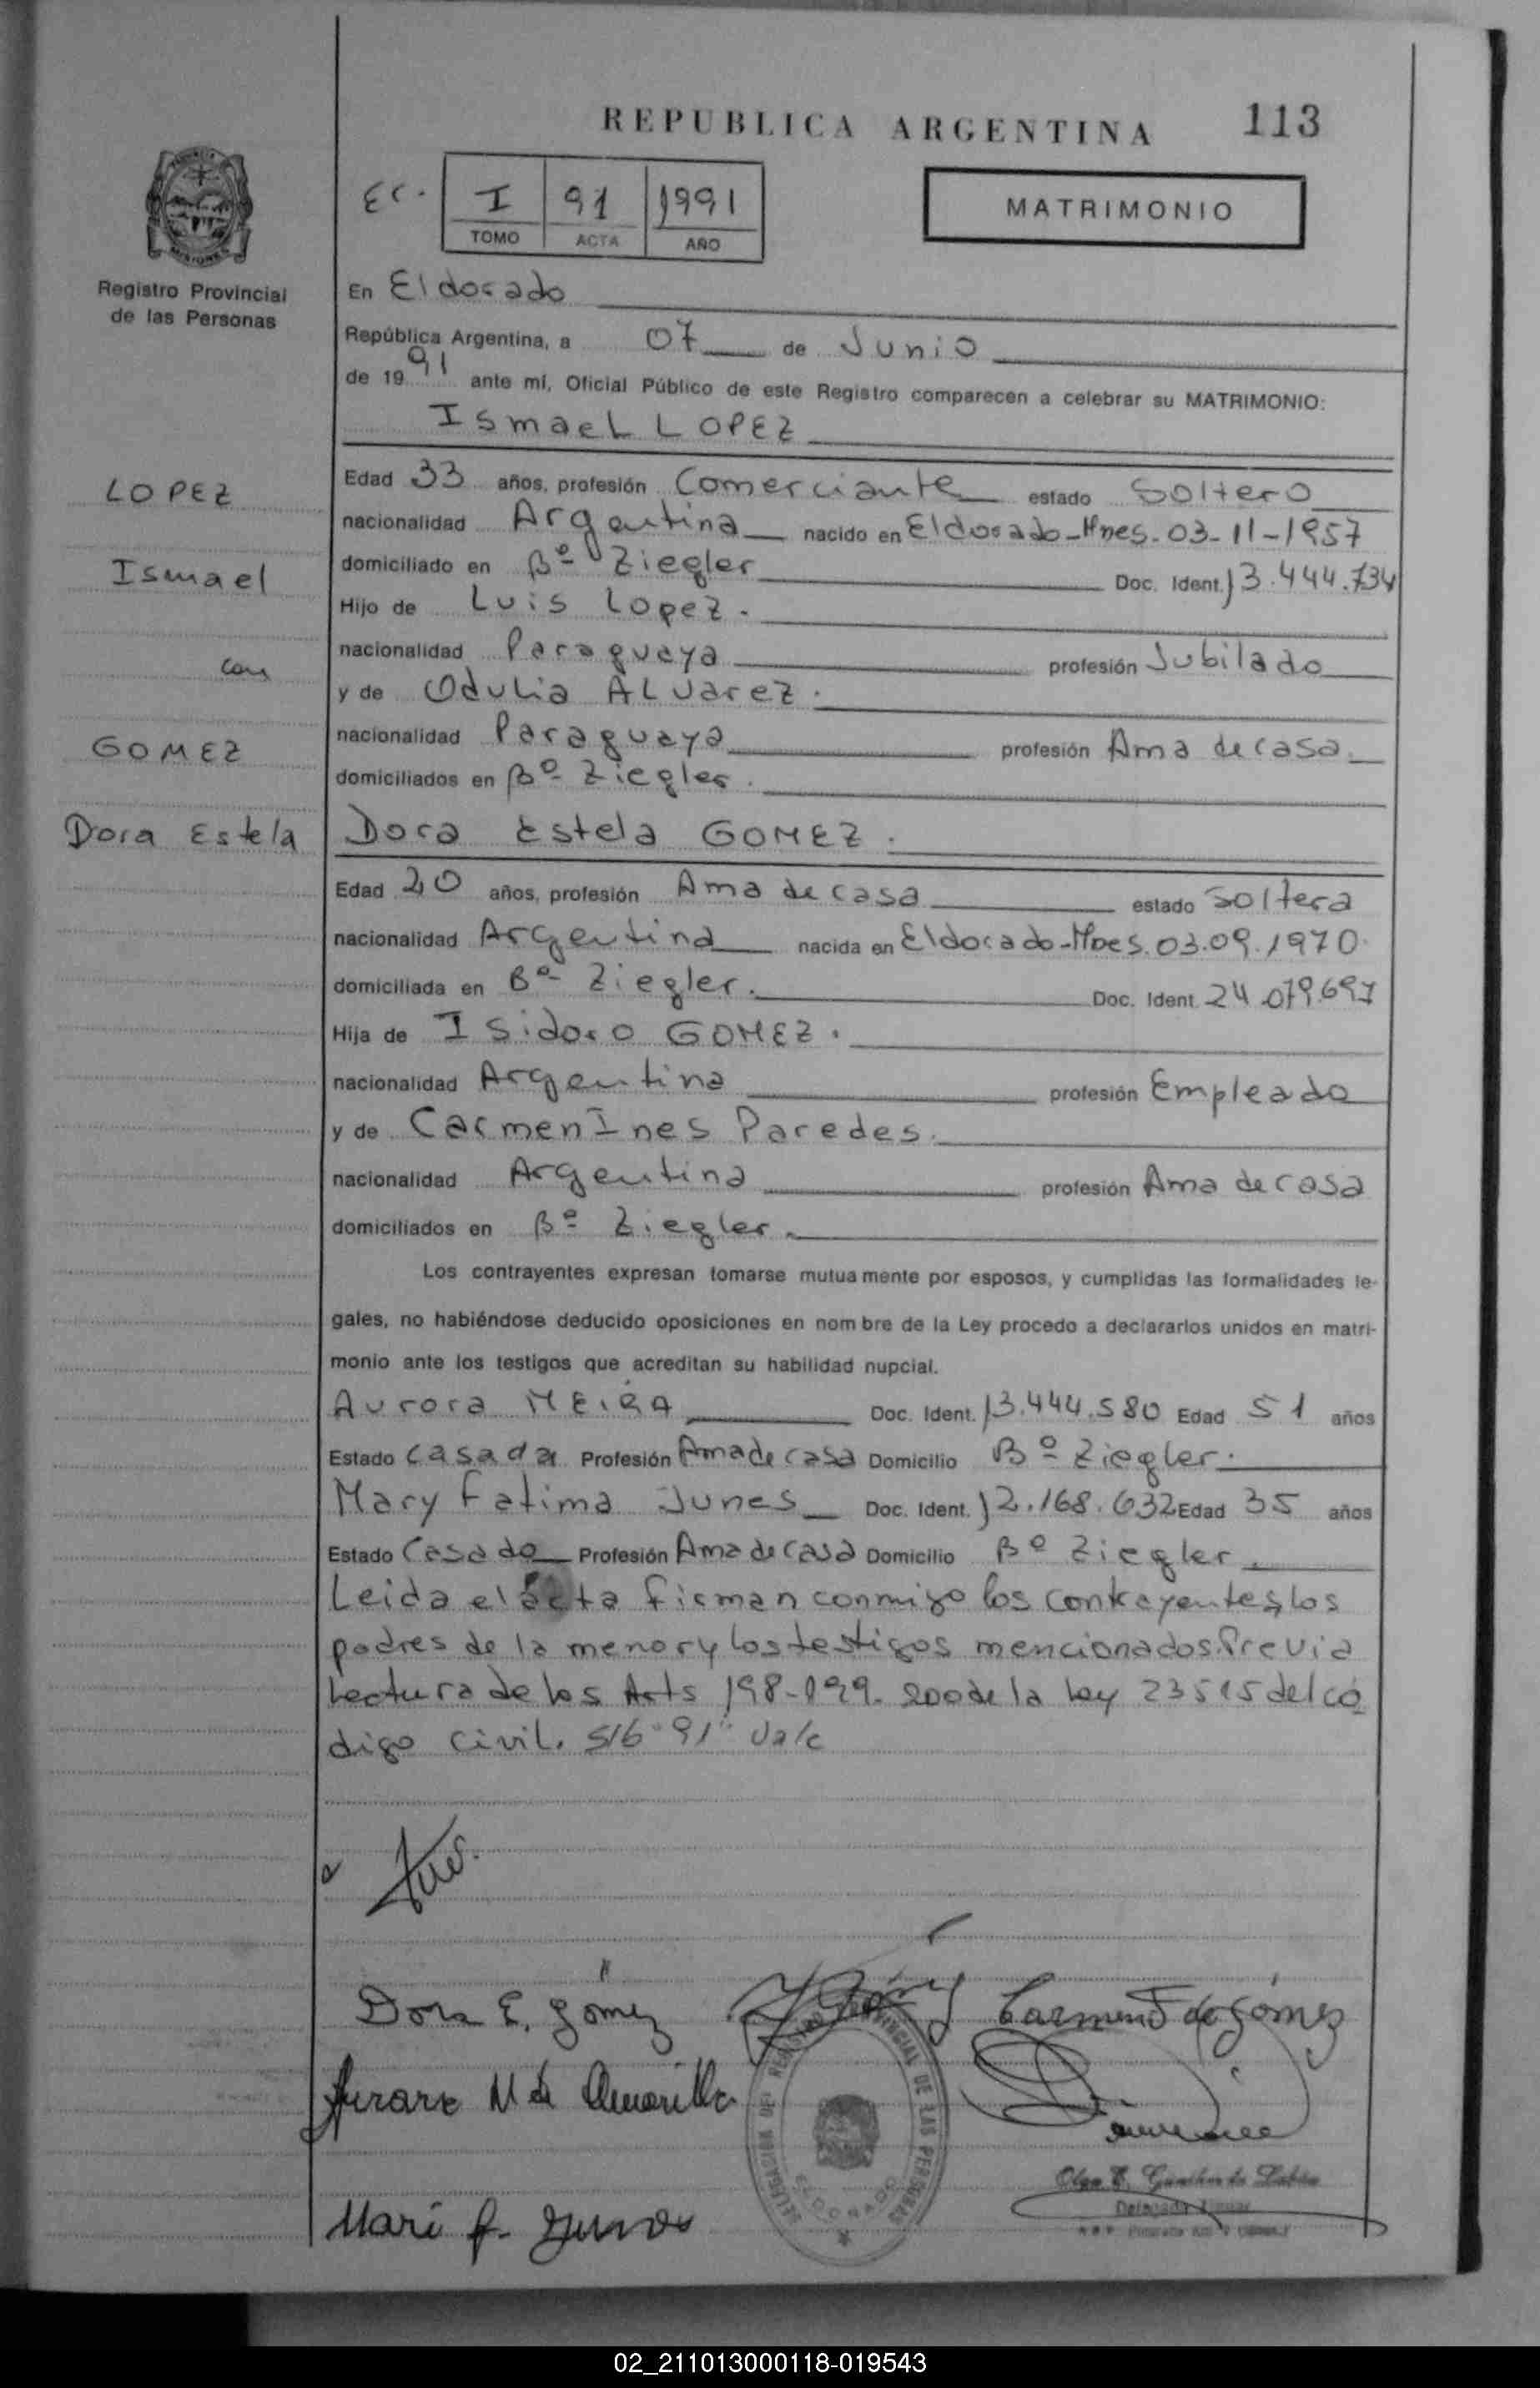 REPUBLICA ARGENTINA 113
Ec. I 91 1991
TOMO ACTA AÑO
MATRIMONIO
Registro Provincial
de las Personas
En Eldorado
República Argentina, a 07 de Junio
de 1991 ante mí, Oficial Público de este Registro comparecen a celebrar su MATRIMONIO:
Ismael LOPEZ
LOPEZ
Ismael
con
GOMEZ
Dora Estela
Edad 33 años, profesión Comerciante estado Soltero
nacionalidad Argentina nacido en Eldorado-Mnes. 03-11-1957
domiciliado en Bº Ziegler Doc. Ident. 13.444.734
Hijo de Luis Lopez.
nacionalidad Paraguaya profesión Jubilado
y de Odulia ALvarez.
nacionalidad Paraguaya profesión Ama de casa
domiciliados en Bº Ziegler.
Dora Estela GOMEZ.
Edad 20 años, profesión Ama de casa estado Soltera
nacionalidad Argentina nacida en Eldorado-Mnes. 03.09.1970
domiciliada en Bº Ziegler. Doc. Ident. 24.079.697
Hija de Isidoro GOMEZ.
nacionalidad Argentina profesión Empleado
y de Carmen Ines Paredes.
nacionalidad Argentina profesión Ama de casa
domiciliados en Bº Ziegler.
Los contrayentes expresan tomarse mutuamente por esposos, y cumplidas las formalidades le-
gales, no habiéndose deducido oposiciones en nombre de la Ley procedo a declararlos unidos en matri-
monio ante los testigos que acreditan su habilidad nupcial.
Aurora MEIRA Doc. Ident. 13.444.580 Edad 51 años
Estado Casada Profesión Ama de casa Domicilio Bº Ziegler.
Mary Fatima Junes Doc. Ident. 12.168.632 Edad 35 años
Estado Casado Profesión Ama de casa Domicilio Bº Ziegler
Leida el acta firman conmigo los contrayentes, los
padres de la menor y los testigos mencionados. Previa
Lectura de los Arts 198-199-200 de la Ley 23515 del Có
digo Civil. S/b "91" Vale
Dora E. Gómez Carmen de Gómez
M de Amarilla
DELEGACION DEL REGISTRO PROVINCIAL DE LAS PERSONAS
ELDORADO
Mari f.
02_211013000118-019543